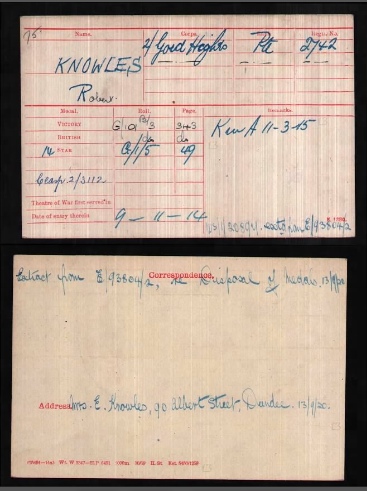 Name. Corps. Rank. Regtl. No.
KNOWLES 2/ Gord Highrs Pte 2742
Robert.
Medal. Roll. Page. Remarks.
VICTORY G/101 B13 343 K in A 11-3-15
BRITISH do do
14 STAR G/1/5 49
Clasp. 2/3112
Theatre of War first served in
Date of entry therein 9-11-14
K. 1380.
Correspondence.
Extract from E/93804/2, re Disposal of medals, 13/9/20
Address Mrs. E. Knowles, 90 Albert Street, Dundee. 13/9/20.